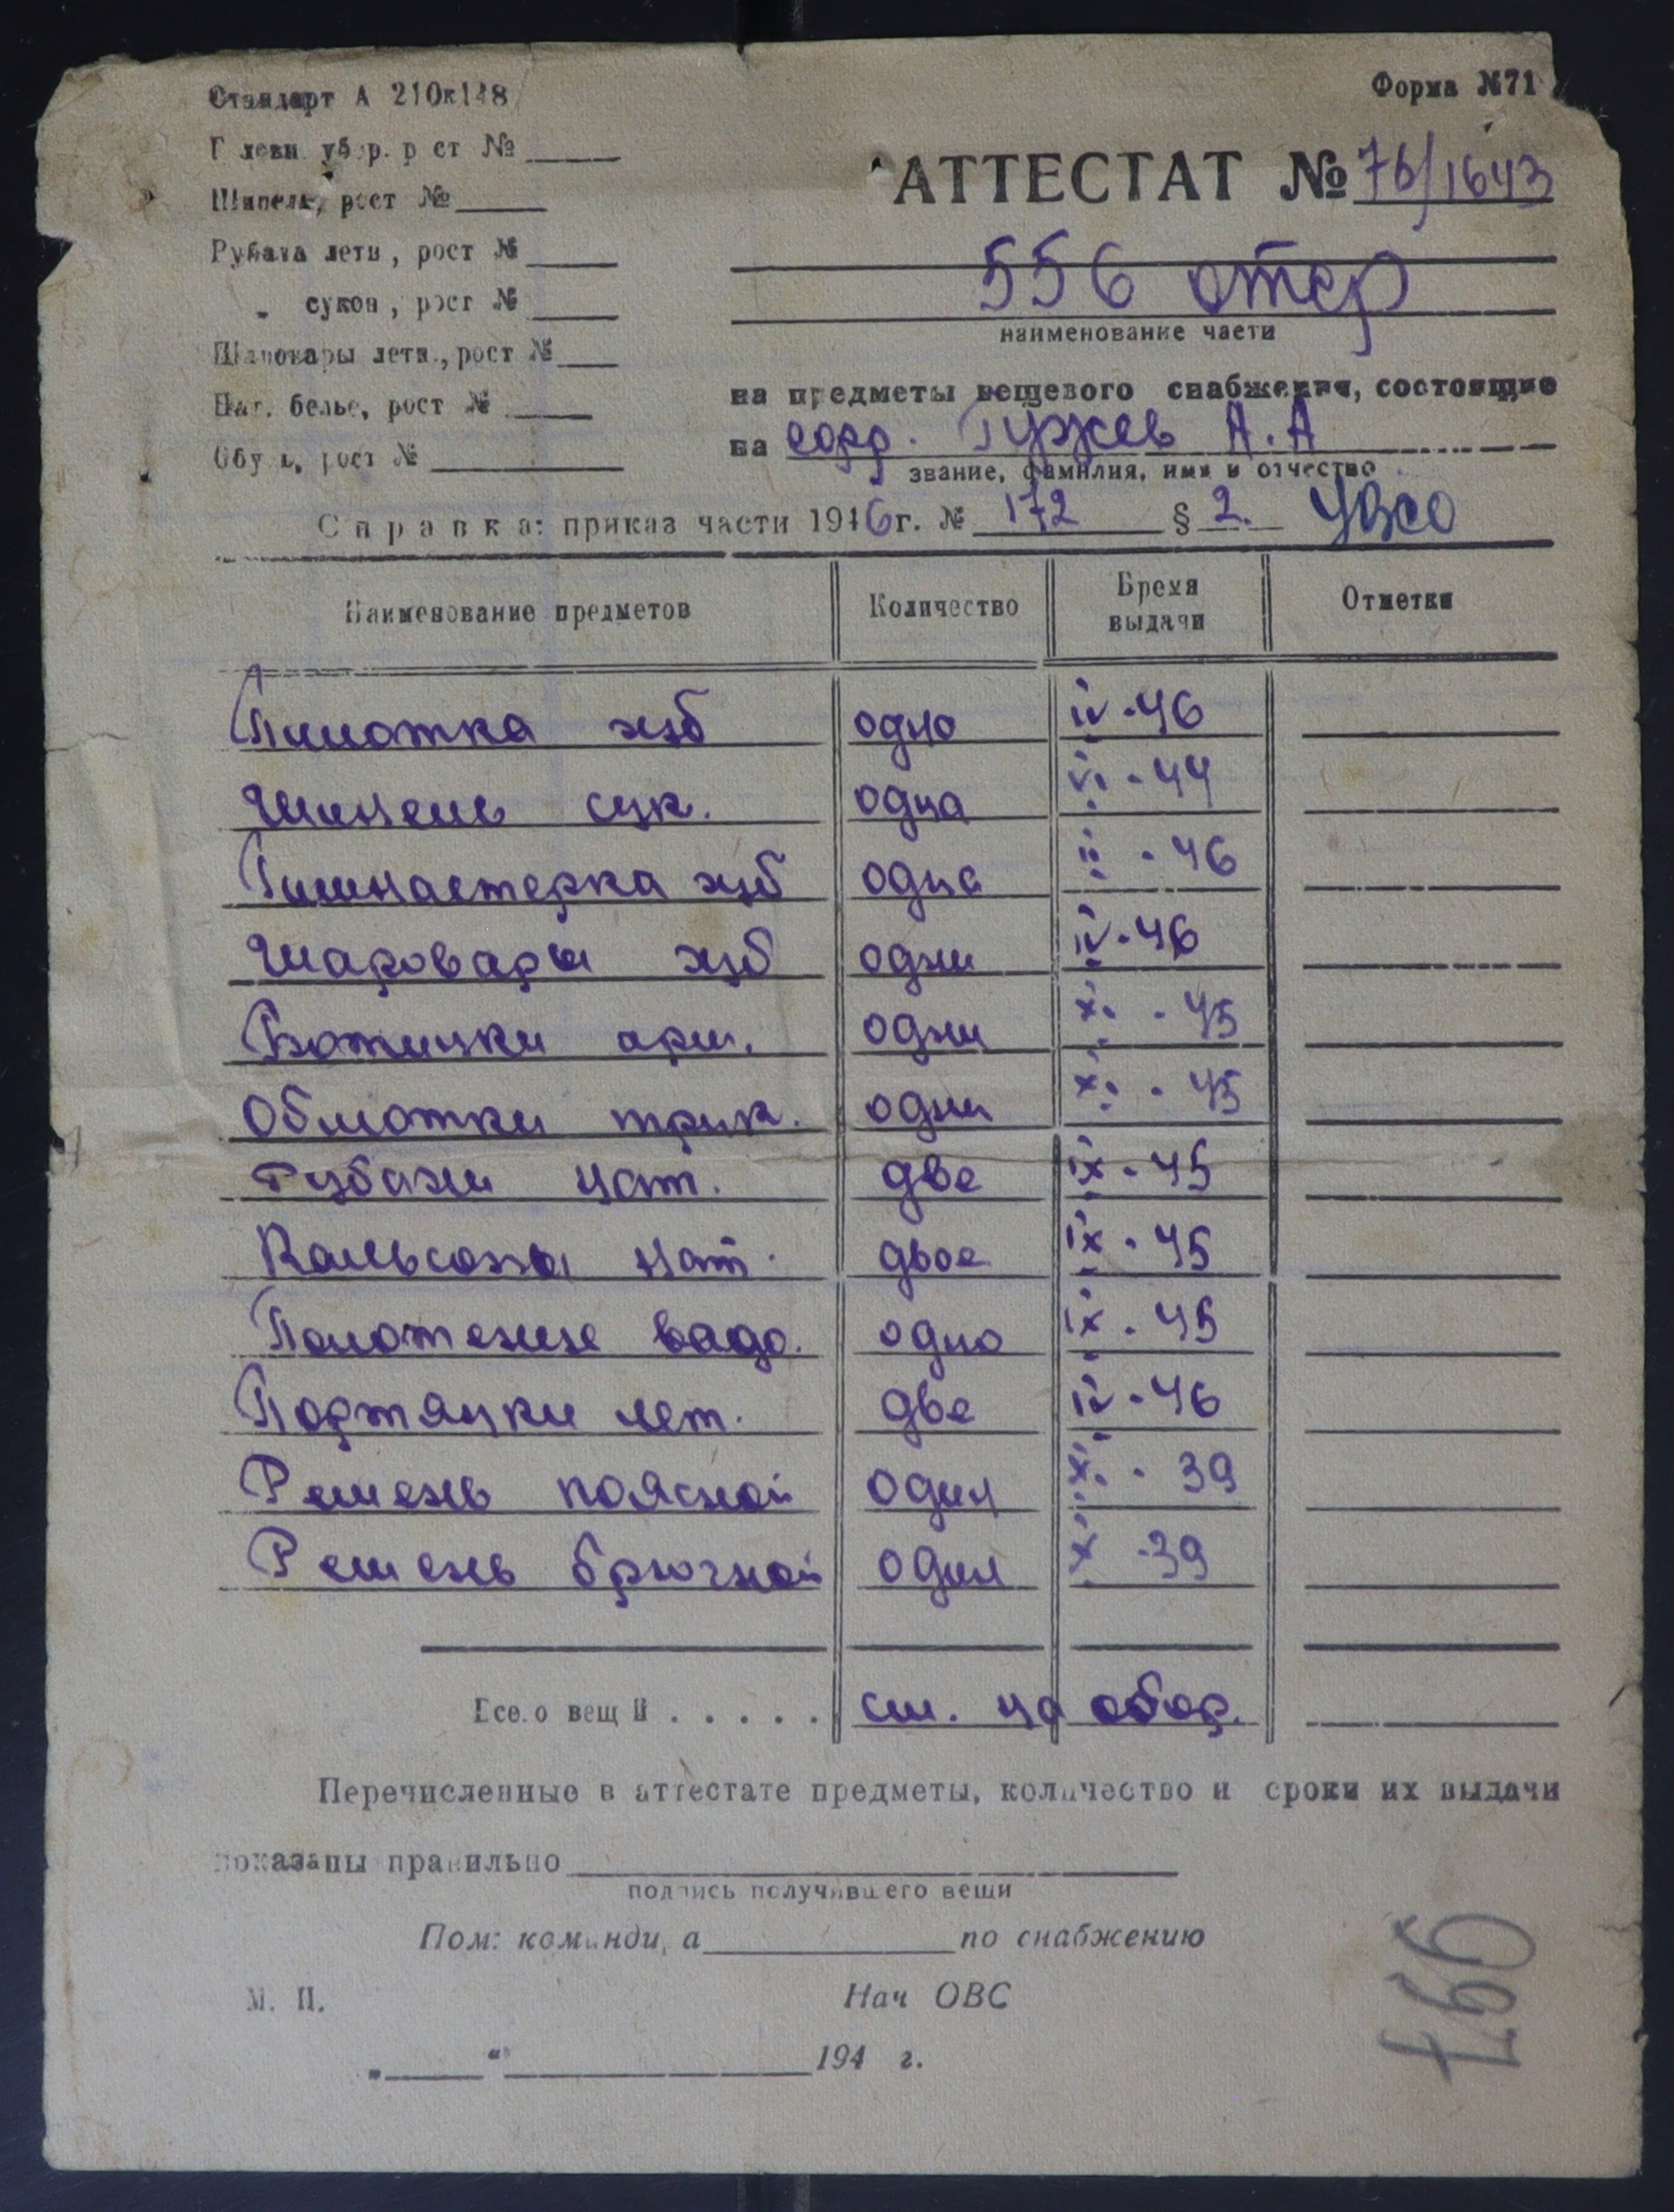 Стандарт А 210х148
Форма №71
Головн. убор. рост №
Шинель, рост №
Рубаха летн, рост №
" сукон, рост №
Шаровары летн., рост №
Нат. белье, рост №
Обувь, рост №
АТТЕСТАТ № 76/1643
556 отер
наименование части
на предметы вещевого снабжения, состоящие
на ефр. Гуржев А. А
звание, фамилия, имя и отчество
Справка: приказ части 1946г. № 172 § 2.
Наименование предметов Количество Время выдачи Отметки
Пилотка х/б одна IV-46
Шинель сук. одна VI-44
Гимнастерка х/б одна II-46
Шаровары х/б одни IV-46
Ботинки арм. одни XI-45
Обмотки трик. одни XI-45
Рубахи нат. две IX-45
Кальсоны нат. двое IX-45
Полотенце вафо. одно IX-45
Портянки лет. две IV-46
Ремень поясной один XI-39
Ремень брючной один X-39
Всего вещей . . . . . см. на обор.
Перечисленные в аттестате предметы, количество и сроки их выдачи
показаны правильно
подпись получившего вещи
Пом: командира по снабжению
М. П. Нач ОВС
„ “ 194 г.